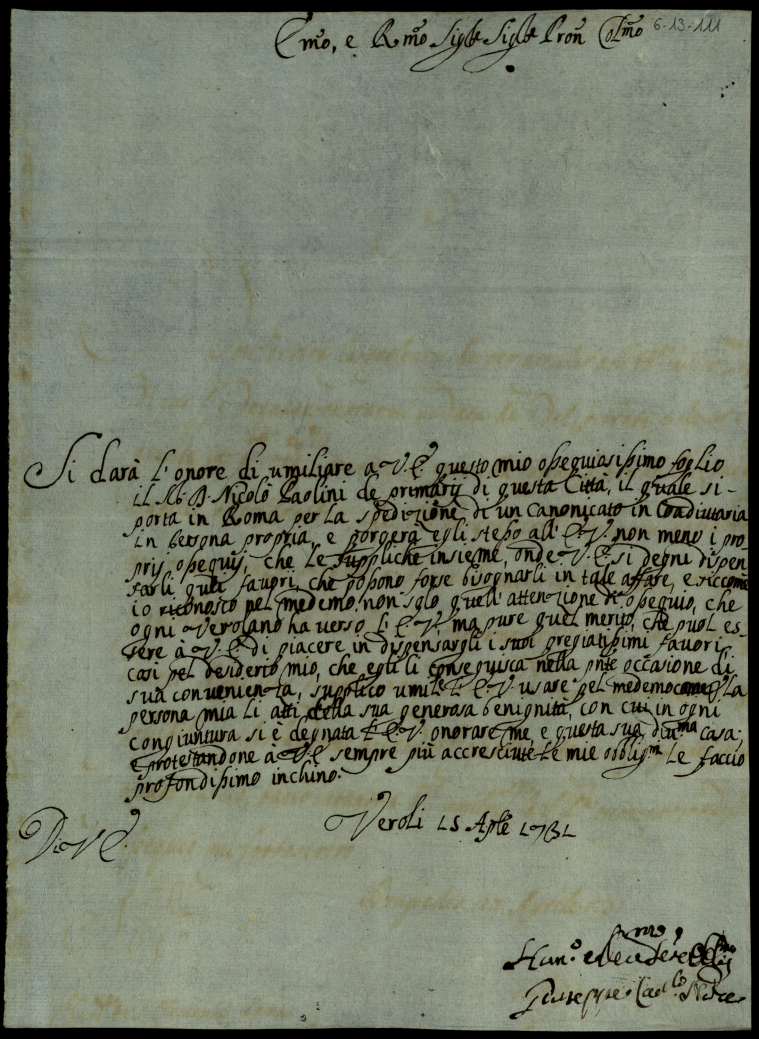 Emo, e Rmo Sigre Sigre Pron Colmo
6-13-111
Si darà l'onore di umiliare a V.E. questo mio ossequiosissimo foglio
il Ab D. Nicolò Paolini de primarij di questa Città, il quale si
porta in Roma per la spedizione di un Canonicato in Coadiutaria
in persona propria, e porgerà egli stesso all'E.V. non meno i pro
prij ossequij, che le suppliche insieme, onde V.E. si degni dispen
sarli quei favori, che possono forse bisognarli in tale affare, e siccome
io riconosco nel medemo, non solo quell'attenzione di ossequio, che
ogni Verolano ha verso l'E.V. ma pure quel merito, che puol es
sere à V.E. di piacere in dispensargli i suoi pregiatissimi favori
così pel desiderio mio, che egli li conseguisca nella pnte occasione di
sua convenienza, supplico umilte l'E.V. usare pel medemo come p la
persona mia li atti della sua generosa benignità, con cui in ogni
congiuntura si è degnata l'E.V. onorare me, e questa sua divma casa;
e protestandone à V.E. sempre più accresciute le mie obbligni le faccio
profondissimo inchino.
Di V.E.
Veroli 15 Aple 1731
Giuseppe